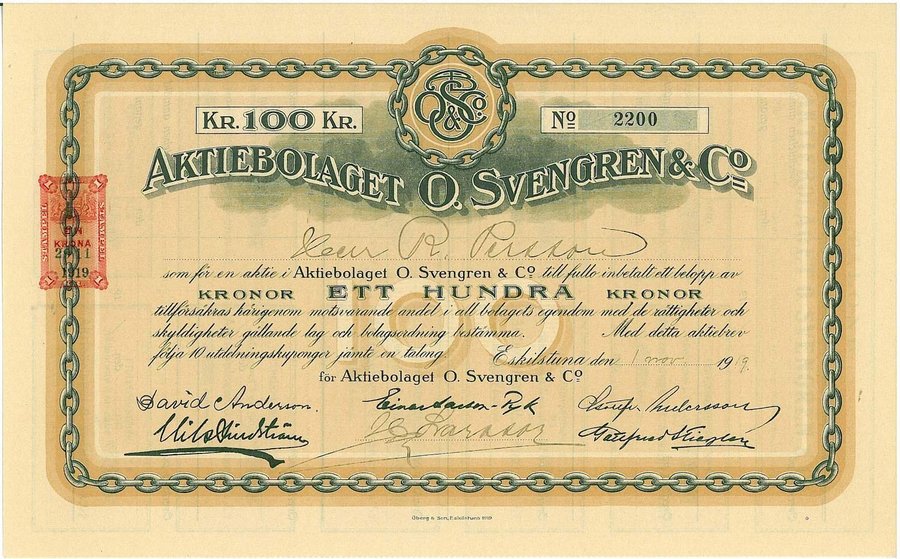 KR. 100 KR.
No 2200
AKTIEBOLAGET O. SVENGREN & Co
Herr R. Persson
som för en aktie i Aktiebolaget O. Svengren & Co till fullo inbetalt ett belopp av
KRONOR ETT HUNDRA KRONOR
tillförsäkras härigenom motsvarande andel i all bolagets egendom med de rättigheter och
skyldigheter gällande lag och bolagsordning bestämma. Med detta aktiebrev
följa 10 utdelningskuponger jämte en talong. Eskilstuna den 1 nov. 1919.
för Aktiebolaget O. Svengren & Co
David Anderson.
Nils Lindström
Larsson
Öberg & Son, Eskilstuna 1919
STÄMPEL
1 1
KRONA
1919
1 1
100